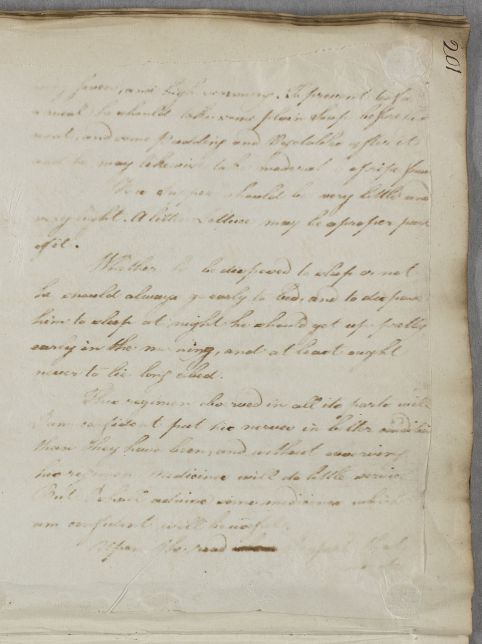 201
and high
a meal he should take some plain Soup before
meat, and some pudding and Vegetables after it
and he may take
The supper should be very little and
very light. A little Lettuce may be a proper part
of it.
Whether he be disposed to sleep or not
he should always go early to bed, and to dispose
him to sleep at night he should get up pretty
early in the morning, and at least ought
never to lie long abed.
This regimen observed in all its parts will
I am confident put his nerves in better condition
than they have been, and without observing
the regimen medicine will do little service
But I shall advise some medicines which
I am confident will be useful.
Upon the road